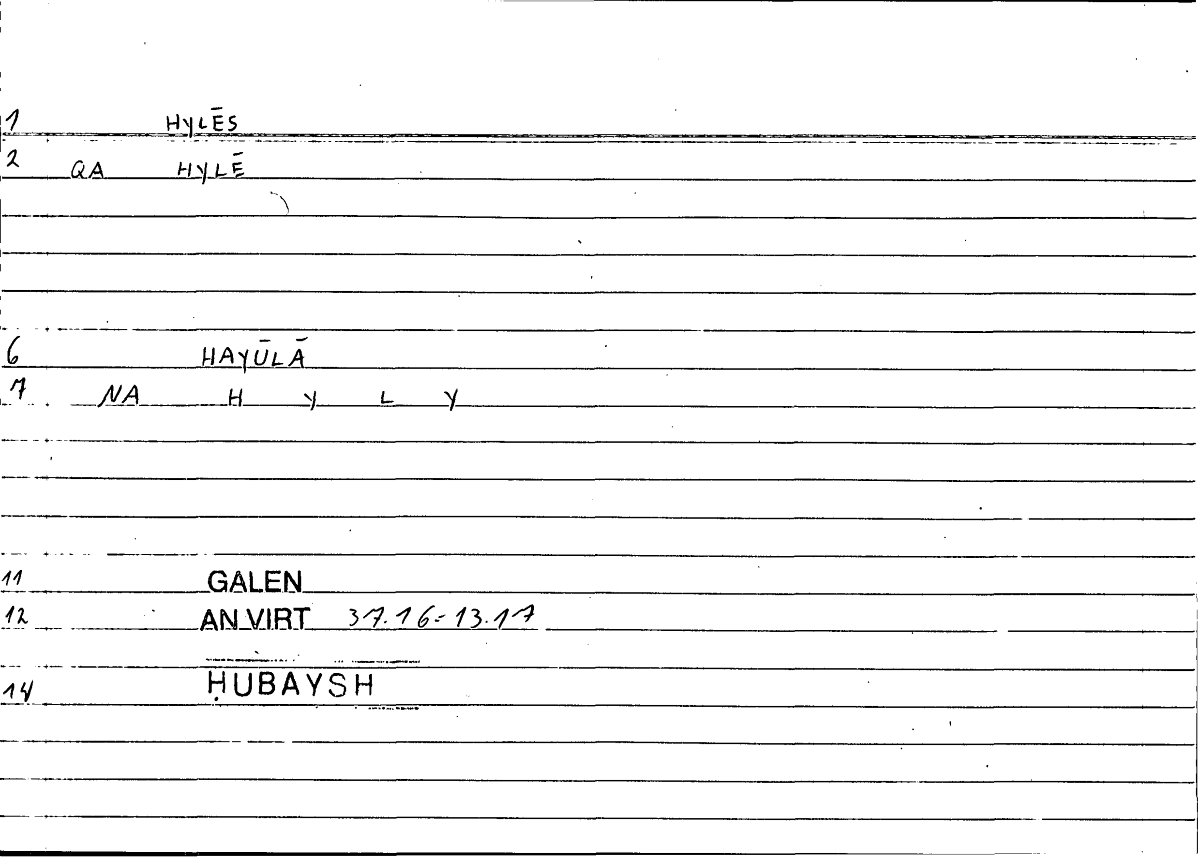 1 HYLĒS
2 QA HYLĒ
6 HAYŪLĀ
7 NA H Y L Y
11 GALEN
12 AN VIRT 37.16=13.17
14 ḤUBAYSH